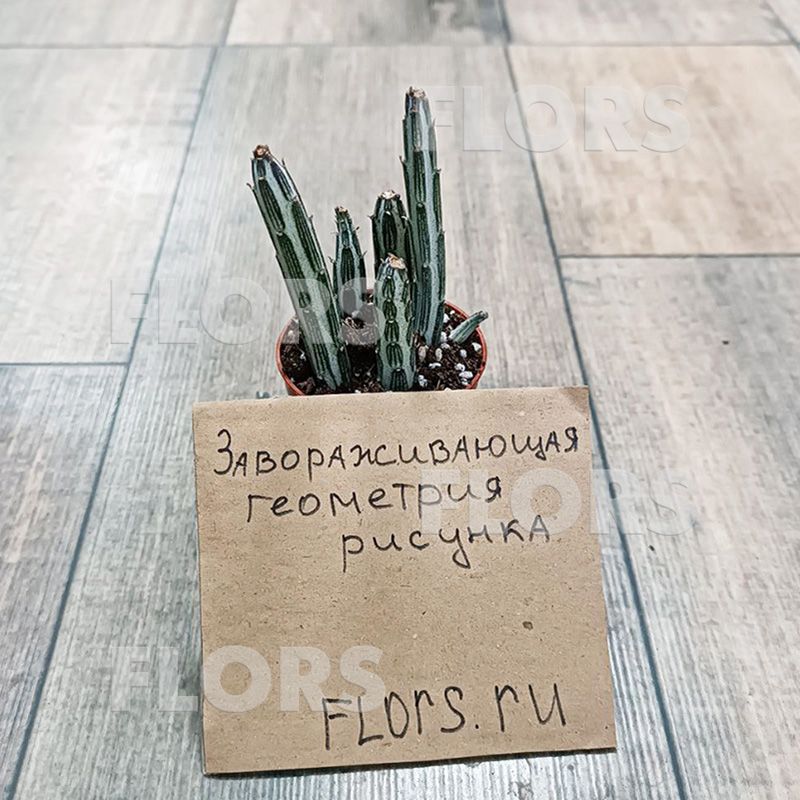 FLORS
FLORS
Завораживающая
геометрия
рисунка
FLORS
FLORS
FLors.ru